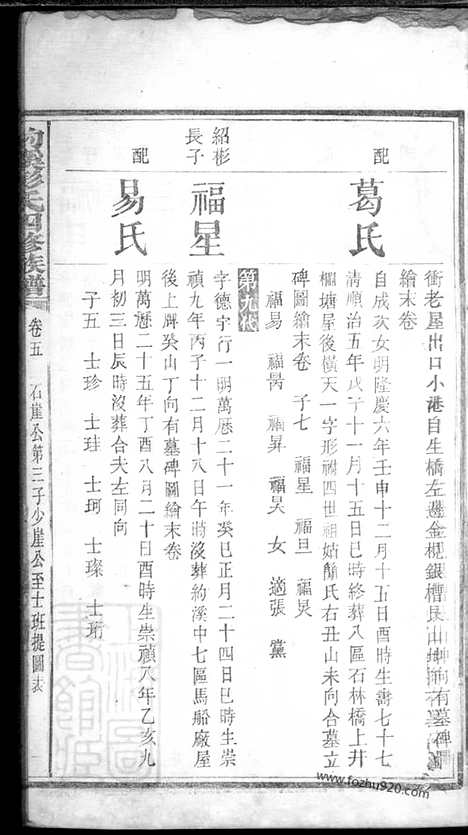 衝老屋出口小港自生橋左邊金梘銀槽艮山坤向有墓碑圖
繪末卷
配 葛氏
自成次女明隆慶六年壬申十二月十五日酉時生壽七十七
清順治五年戊子十一月十五日巳時終葬八區石林橋上井
欄塘屋後橫天一字形祔四世祖妣簡氏右丑山未向合墓立
碑圖繪末卷 子七 福星 福旦 福炅
福易 福昺 福昇 福昊 女 適張 黨
第九代
紹彬長子 福星
字德宇行一明萬厯二十一年癸巳正月二十四日巳時生崇
禎九年丙子十二月十八日午時沒葬約溪中七區馬船廠屋
後上嘴癸山丁向有墓碑圖繪末卷
配 易氏
明萬厯二十五年丁酉八月二十日酉時生崇禎八年乙亥九
月初三日辰時沒葬合夫左同向
子五 士珍 士珪 士珂 士璨 士珩
彭氏四修族譜
卷五 石崖公第三子少崖公至士班提圖表
www.fozhu920.com